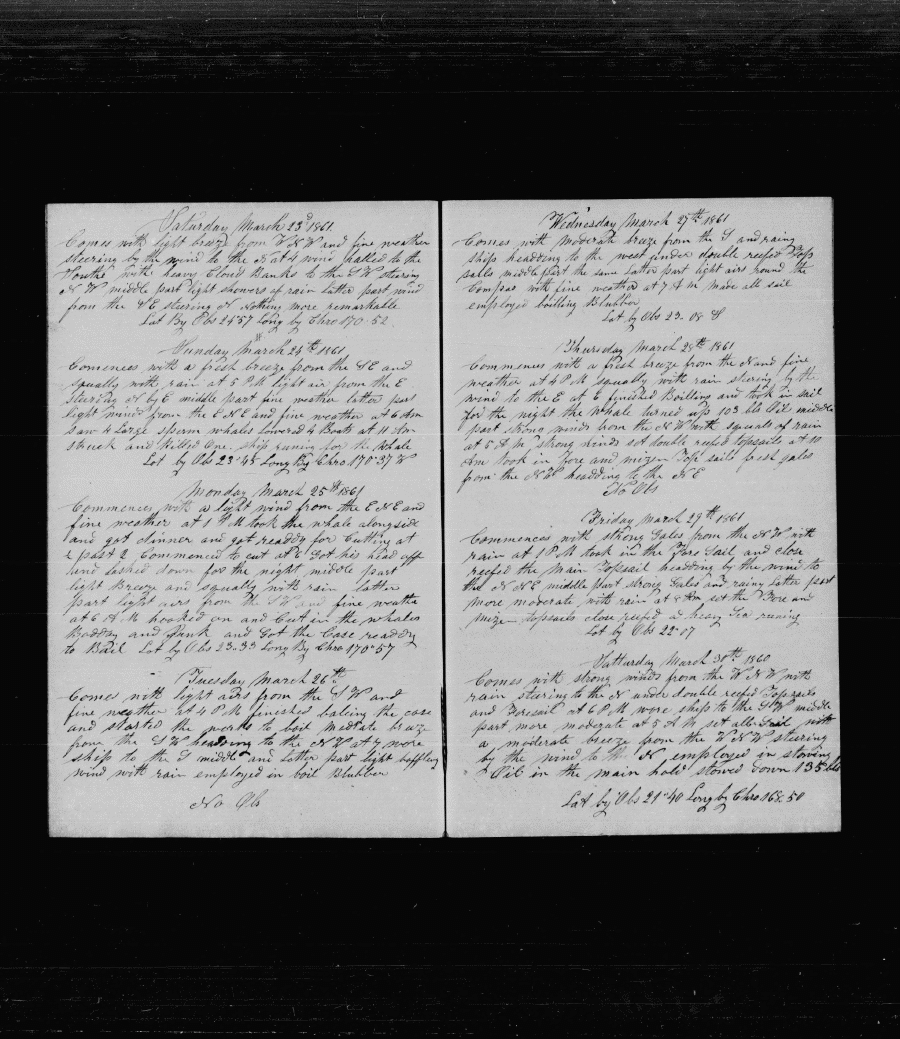 Saturday March 23d 1861
Comes with light breaze from W N W and fine weather
steering by the wind to the N at 4 wind halled to the
South with heavy Cloud Banks to the S W steering
N W middle part light showers of rain latter part wind
from the S E steering N Nothing more remarkable
Lat By Obs 24 57 Long by Chro 170 52
Sunday March 24th 1861
Comences with a fresh breeze from the S E and
squally with rain at 5 P M light air from the E
steering N by E middle part fine weather latter part
light wind from the E N E and fine weather at 6 Am
saw 4 Large sperm whales lowered 4 Boats at 11 Am
struck and killed One ship runing for the whale
Lat by Obs 23 45 Long By Chro 170 37 W
Monday March 25th 1861
Commences with a light wind from the E N E and
fine weather at 1 P M took the whale alongside
and got dinner and got readdy for Cutting at
½ past 2 Commenced to cut at 6 Got his head off
and lashed down for the night middle part
light Breeze and squally with rain latter
part light airs from the S W and fine weathe
at 6 A M hooked on and Cut in the whales
Boddy and Junk and Got the Case readdy
to Bail Lat by Obs 23 33 Long By Chro 170 57
Tuesday March 26th
Comes with light airs from the S W and
fine weather at 4 P M finished baleing the case
and started the works to boil modrate breaze
from the S W heading to the N W at 7 wore
ship to the S middle and Latter part light baffling
wind with rain employed in boil Blubber
No Obs
Wednesday March 27th 1861
Comes with moderate breeze from the S and rainy
ship headding to the west under double reefed Top
sails middle part the same Latter part light airs round the
Compas with fine weather at 7 A M made all sail
employed boilling Blubber
Lat by Obs 23 08 S
Thursday March 28th 1861
Commences with a fresh breeze from the N and fine
weather at 4 P M squally with rain stering by the
wind to the E at 6 finished Boilling and took in sail
for the night the whale turned up 103 bls Oil middle
part strong winds from the N W with squals of rain
at 5 A M strong winds set double reefed topsails at 10
Am took in Fore and mizen Top sails fresh gales
from the N W headding to the N E
No Obs
Friday March 29th 1861
Commences with strong Gales from the N W with
rain at 1 P M took in the Fore Sail and close
reefed the Main Topsail headding by the wind to
the N N E middle part strong Gales and rainy Latter part
more moderate with rain at 8 Am set the Fore and
mizen topsails close reefed a heavy Sea runing
Lat by Obs 22 07
Satturday March 30th 1860
Comes with strong winds from the W N W with
rain staring to the N under double reefed Topsails
and Foresail at 6 P M wore ship to the S W middle
part more moderate at 5 A M set all Sail with
a moderate breeze from the W N W steering
by the wind to the N employed in stowing
Oil in the main hold stowed down 135 bls
Lat by Obs 21 40 Long by Chro 168 50